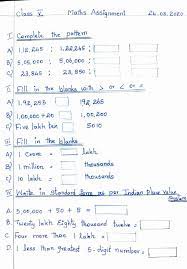 Class V Maths Assignment 26.03.2020
I Complete the pattern
A) 1,12,245 ; 1,22,245 ;
B) 5,05,000 ; 5,06,000 ;
C) 23,845 ; 23,850 ;
II Fill in the blanks with > or < or =
A) 1,92,253 192,265
B) 1,00,000+20 1,00,002
C) Five lakh ten 5010
III Fill in the blanks
A) 1 Crore = lakh
B) 1 million = thousands
C) 1 lakh = thousands
IV Write in Standard form as per Indian Place Value System
A. 5,00,000 + 50 + 5 =
B. Twenty lakh Eighty thousand twelve =
C. Four more than 1 lakh =
D. 1 less than greatest 5-digit number =